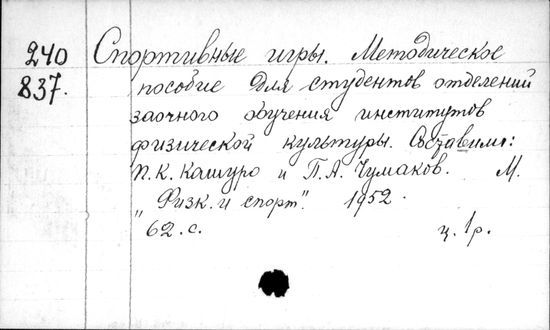 240 Спортивные игры. Методическое
837. пособие для студентов отделений
заочного обучения институтов
физической культуры. Составили:
П.К. Кашуро и П.А. Чумаков. М.
„Физк. и спорт". 1952.
62.с. ц. 1р.